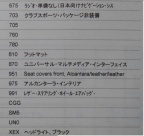 673 ラジオ準備なし/日本向けナビゲーションシス
703 クラブスポーツ・パッケージ非装備
705
760
780
810 フットマット
870 ユニバーサル・マルチメディア・インターフェイス
951 Seat covers front, Alcantara/leather/leather
975 アルカンターラ・インテリア
981 レザー・ステアリング・ホイール・エアバッグ
CGG
SM5
UN0
XEX ヘッドライト、ブラック